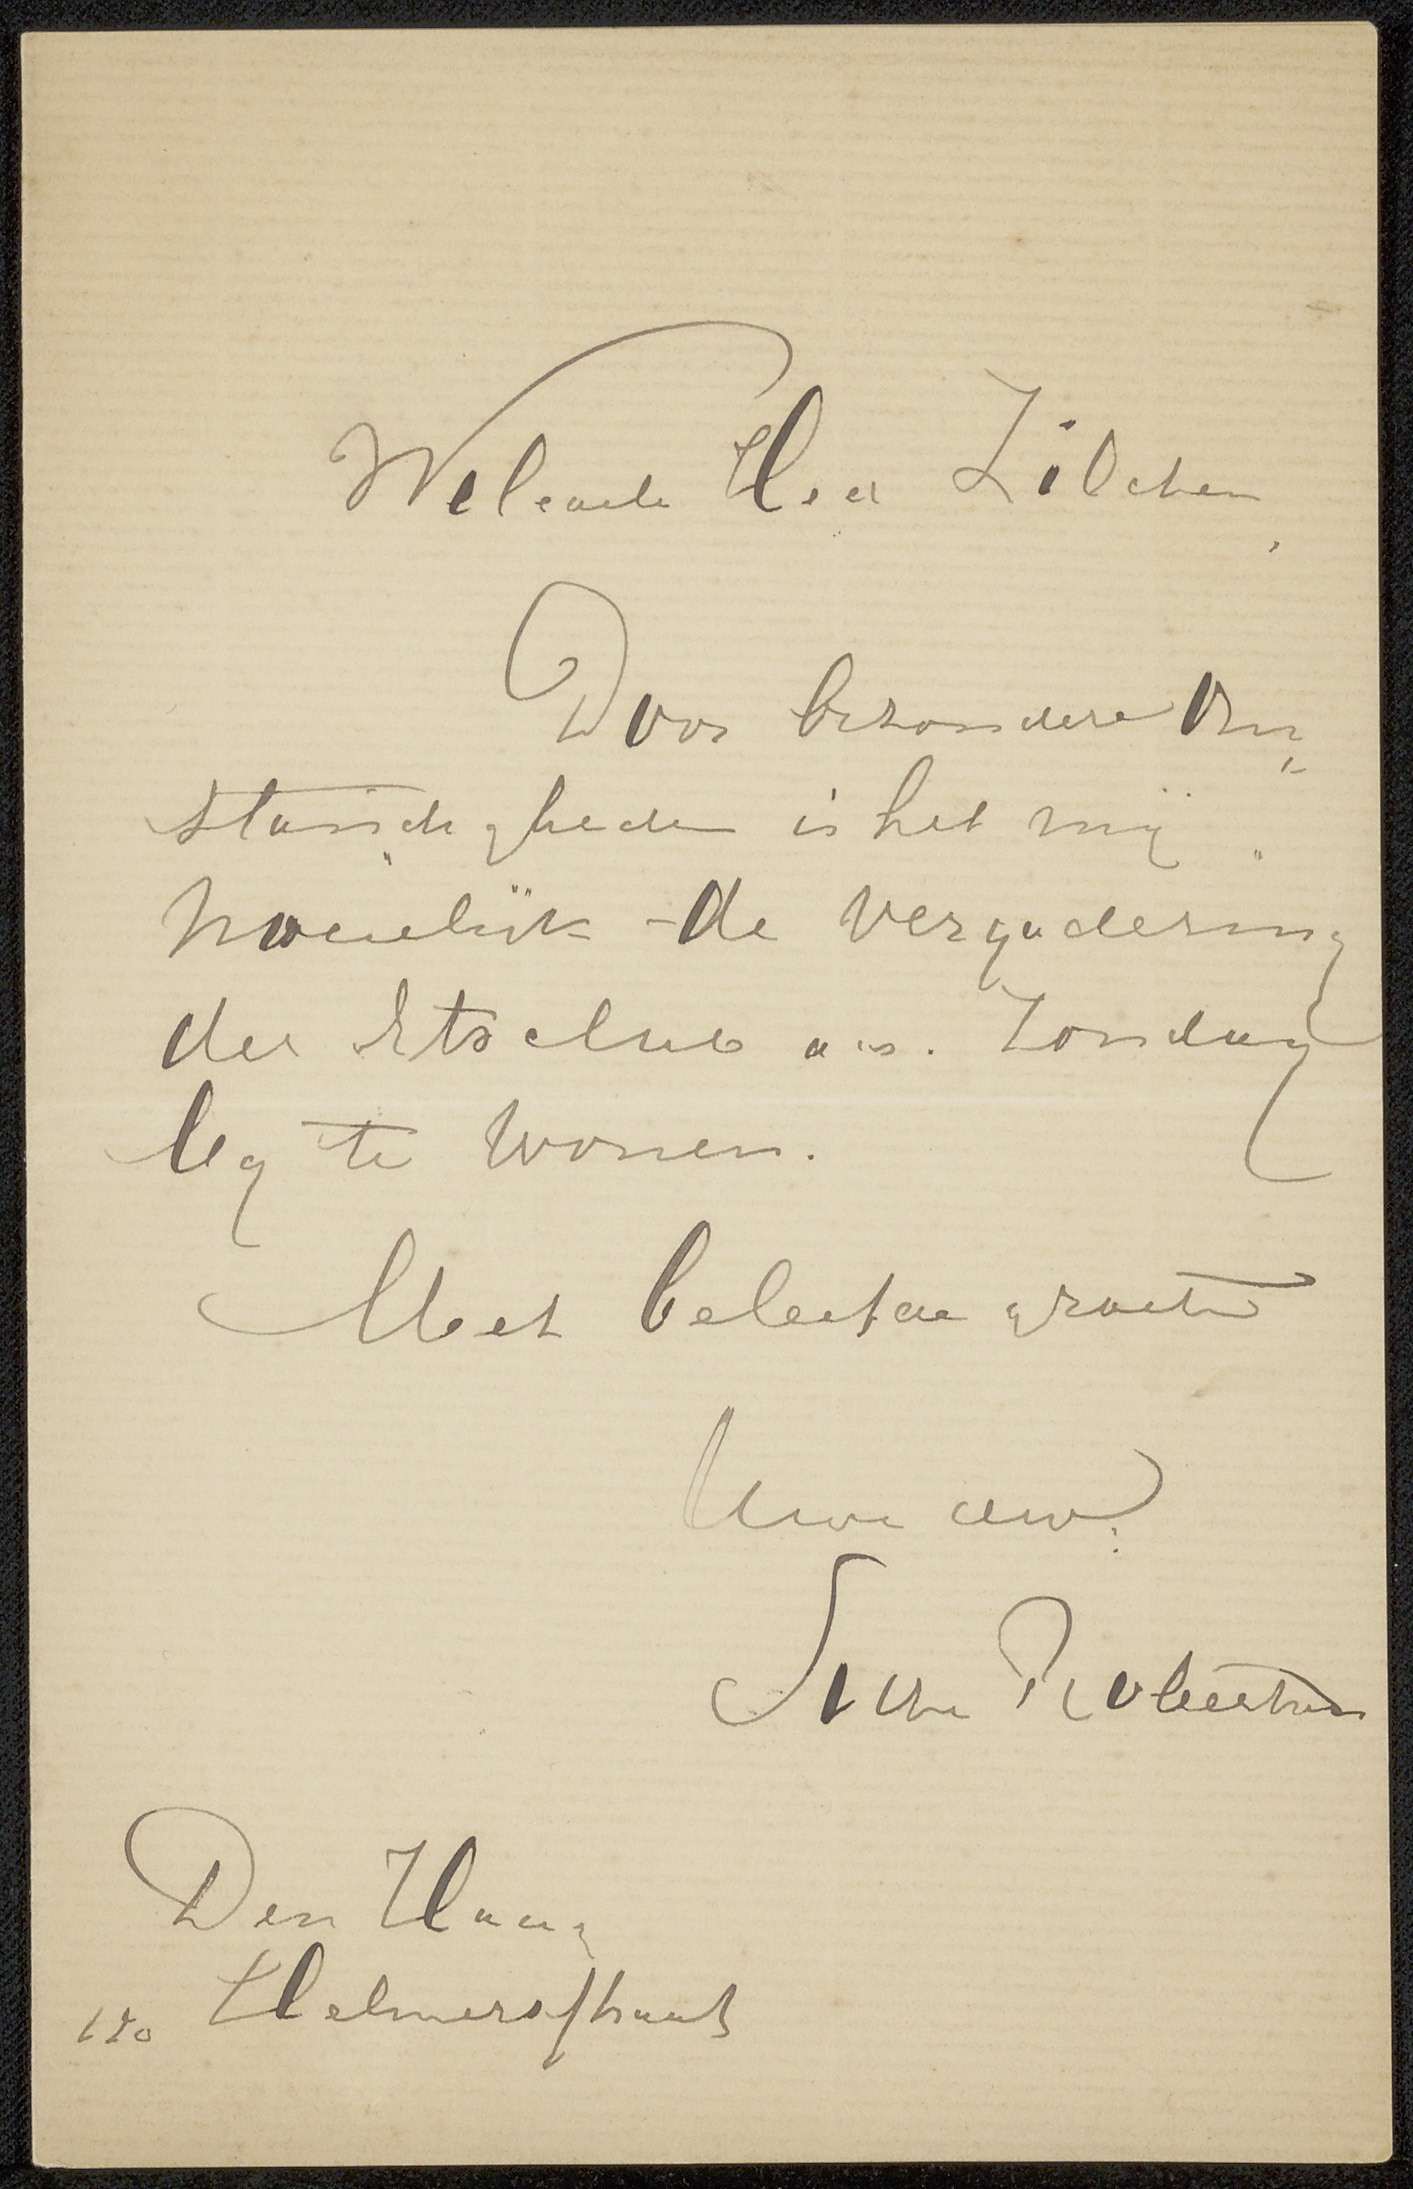 Weledele Heer Zilcken,
Door bezondere Om=
standigheden is het mij
moeielijk de vergadering
der Etsclub a.s. Zondag
by te wonen.
Met beleefde groeten
Uwe dw.
Suze Robertson
Den Haag
Helmersstraat